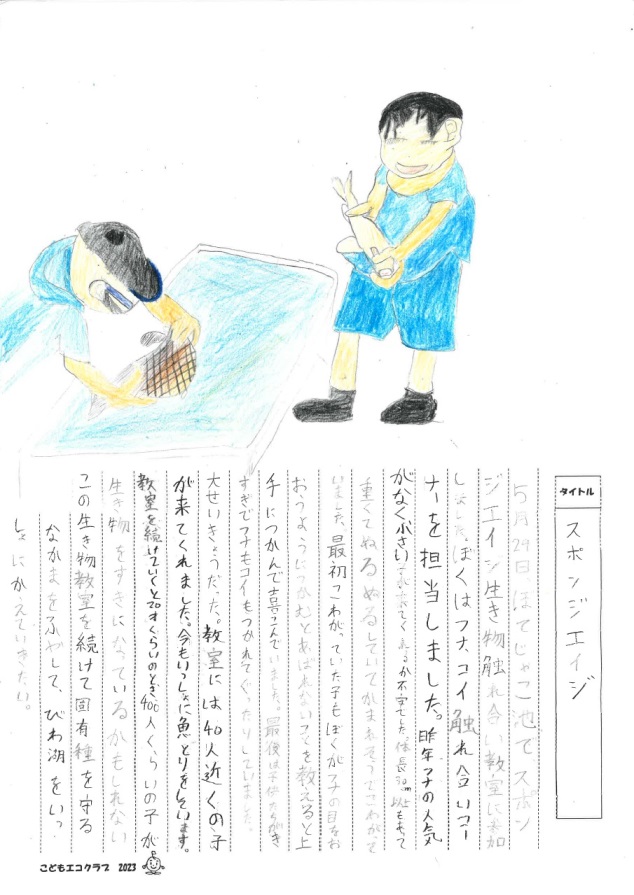 タイトル
スポンジエイジ
5月29日、ほてじゃこ池でスポン
ジエイジ生き物触れ合い教室に参加
しました。ぼくはフナ、コイ触れ合いコー
ナーを担当しました。昨年フナの人気
がなく小さい子にもできるか不安でした。体長30cm以上もあって
重くてぬるぬるしていてかまれそうでこわがって
いました。最初こわがっていた子もぼくがフナの目をお
おうようにつかむとあばれないことを教えると上
手につかんで喜こんでいました。最後は子供たちがき
すぎで子もコイもつかれてぐったりしていました。
大せいきょうだった。教室には40人近くの子
が来てくれました。今もいっしょに魚とりをしています。
教室を続けていくと 400人くらいの子が
生き物をすきになっているかもしれない
この生き物教室を続けて固有種を守る
なかまをふやして、びわ湖をいっ
しょにかえていきたい。
こどもエコクラブ 2023